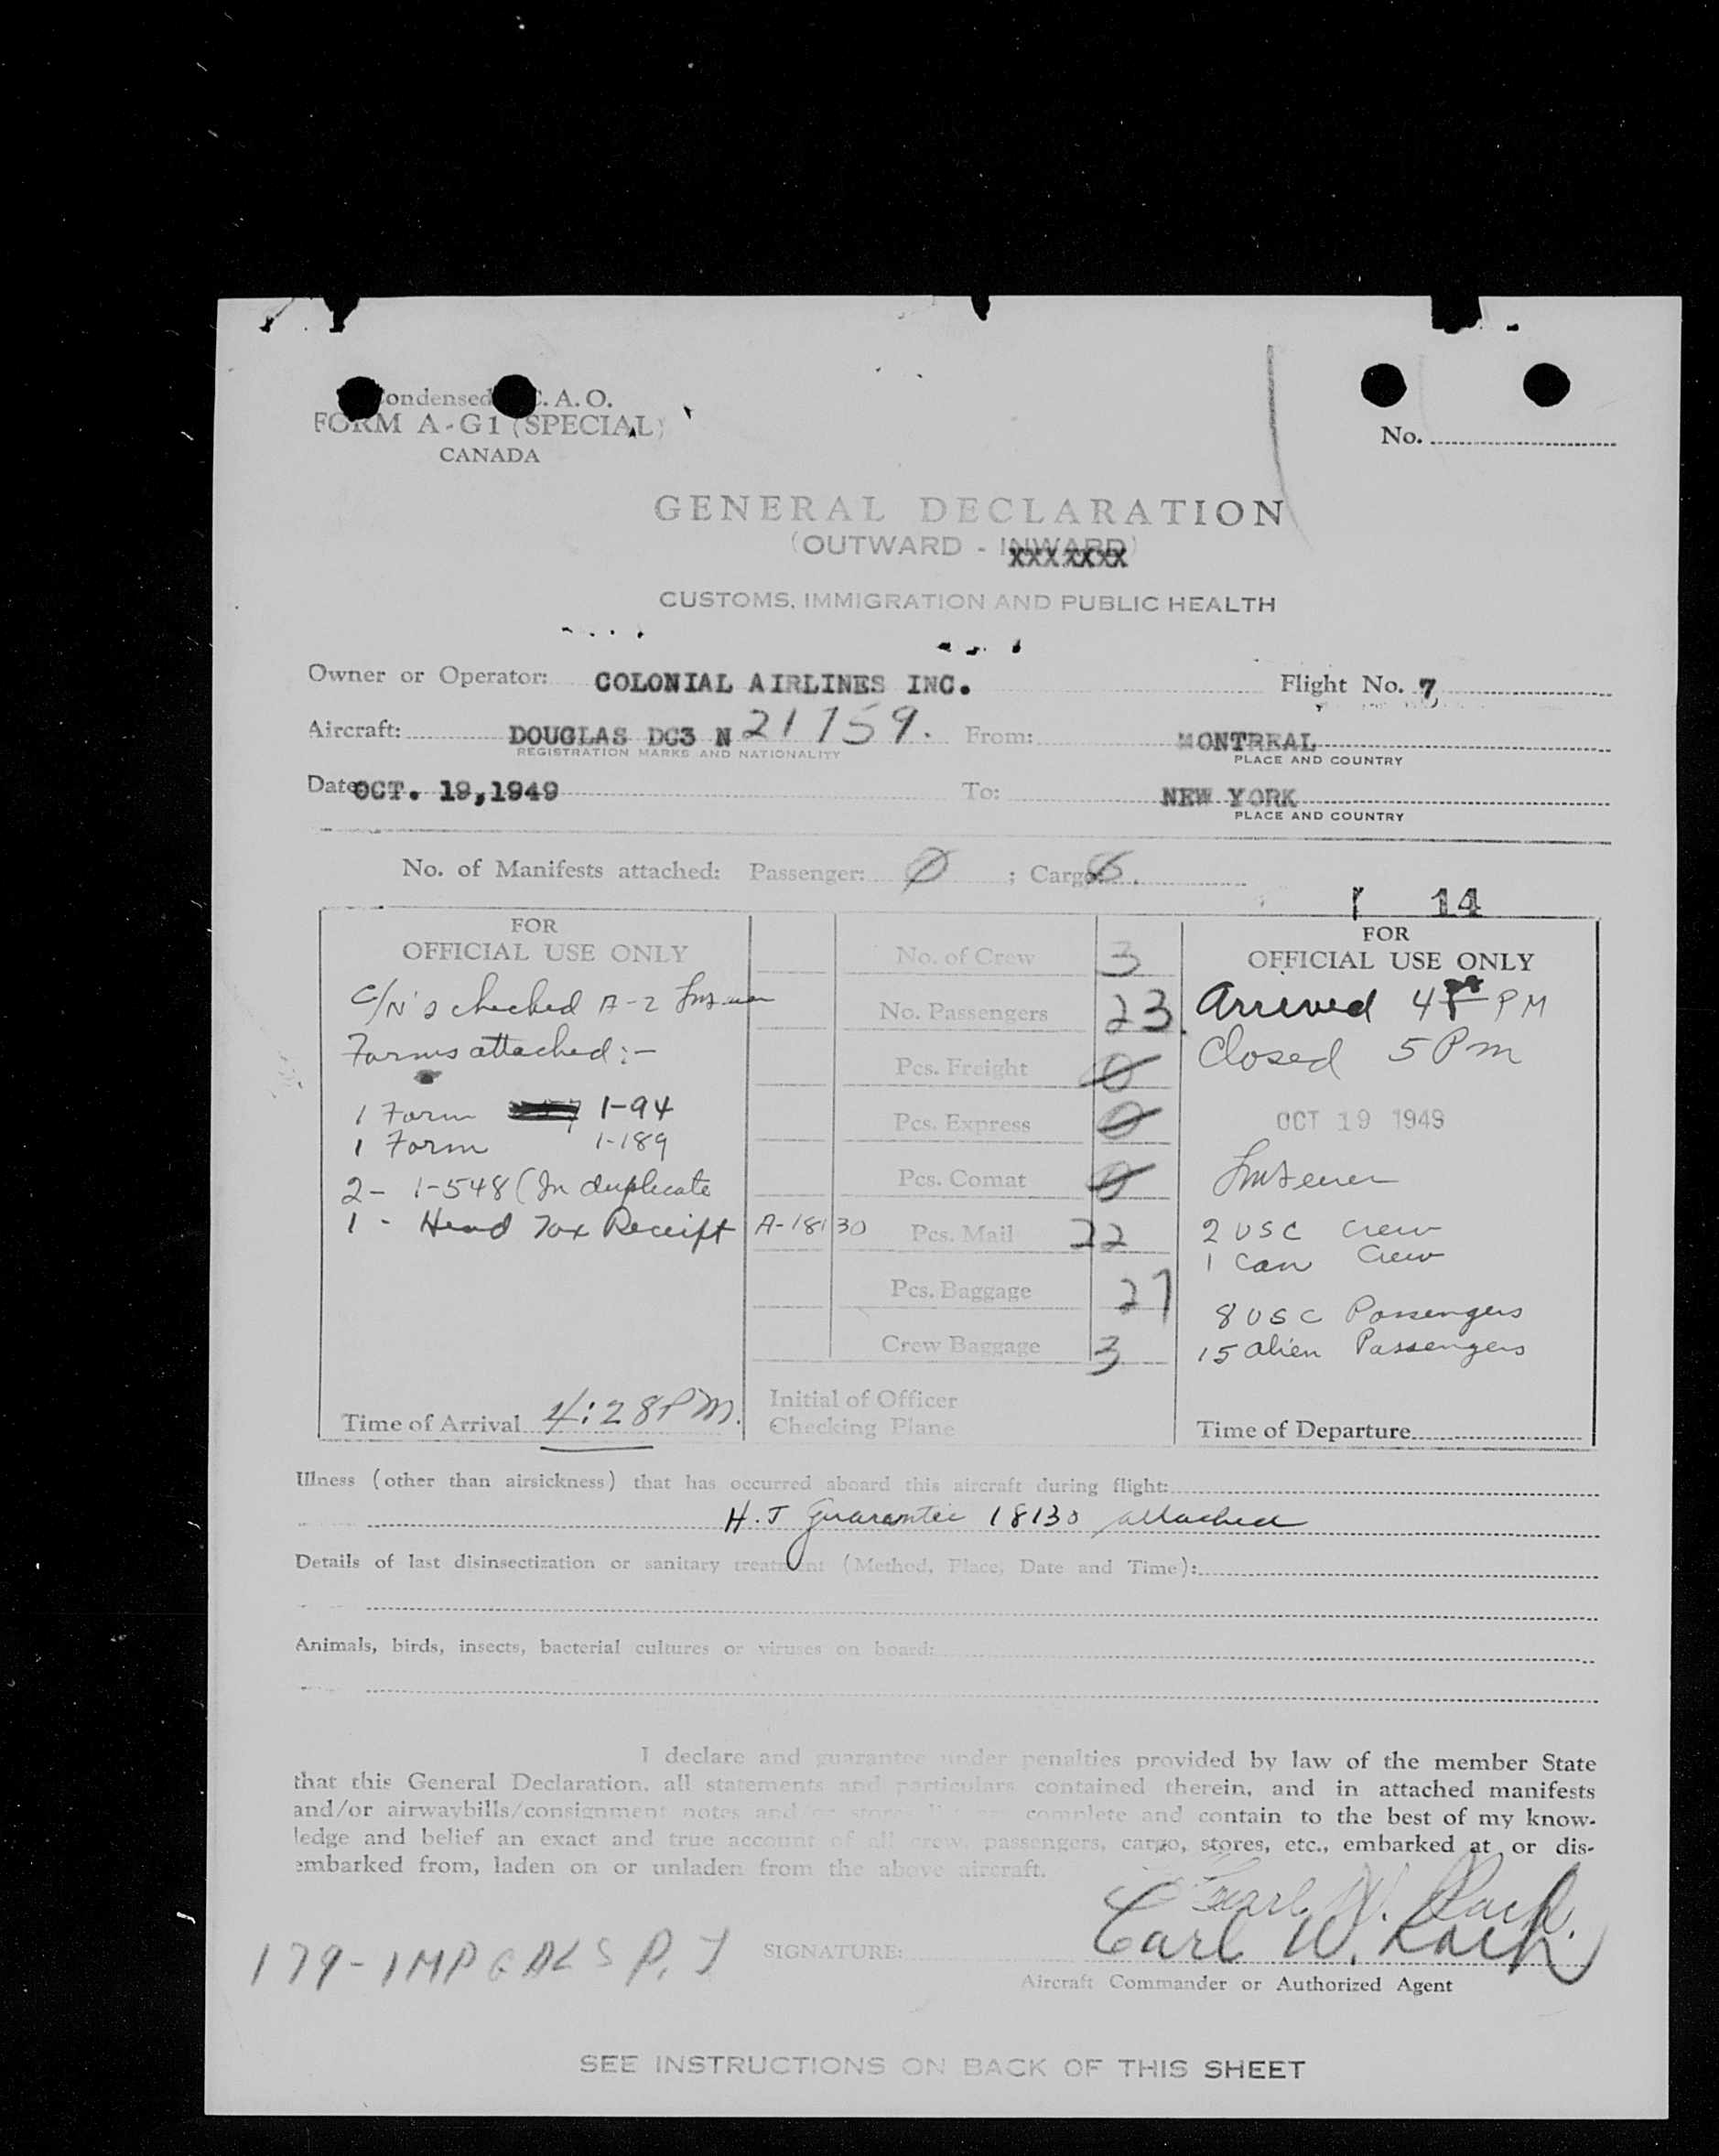 Condensed I.C.A.O.
FORM A-G1 (SPECIAL)
CANADA
No.
GENERAL DECLARATION
(OUTWARD - INWARD)
XXXXXXX
CUSTOMS, IMMIGRATION AND PUBLIC HEALTH
Owner or Operator: COLONIAL AIRLINES INC. Flight No. 7
Aircraft: DOUGLAS DC3 N 21759. From: MONTREAL
REGISTRATION MARKS AND NATIONALITY PLACE AND COUNTRY
Date OCT. 19,1949 To: NEW YORK
PLACE AND COUNTRY
No. of Manifests attached: Passenger: 0 ; Cargo
14
FOR
OFFICIAL USE ONLY
C/N's checked A-2
Forms attached:-
1 Form 1-94
1 Form 1-189
2- 1-548 (In duplicate
1 - Head Tax Receipt A-18130
Time of Arrival 4:28 PM.
No. of Crew 3
No. Passengers 23.
Pcs. Freight 0
Pcs. Express 0
Pcs. Comat 0
Pcs. Mail 22
Pcs. Baggage 27
Crew Baggage 3
Initial of Officer
Checking Plane
FOR
OFFICIAL USE ONLY
Arrived 4 PM
Closed 5 Pm
OCT 19 1949
2 USC Crew
1 Can Crew
8 USC Passengers
15 alien Passengers
Time of Departure
Illness (other than airsickness) that has occurred aboard this aircraft during flight:
H.T Guarantee 18130 attached
Details of last disinsectization or sanitary treatment (Method, Place, Date and Time):
Animals, birds, insects, bacterial cultures or viruses on board:
I declare and guarantee under penalties provided by law of the member State
that this General Declaration, all statements and particulars contained therein, and in attached manifests
and/or airwaybills/consignment notes and/or stores complete and contain to the best of my know-
ledge and belief an exact and true account of all crew, passengers, cargo, stores, etc., embarked at or dis-
embarked from, laden on or unladen from the above aircraft.
179-1MP
SIGNATURE: Carl W.
Aircraft Commander or Authorized Agent
SEE INSTRUCTIONS ON BACK OF THIS SHEET